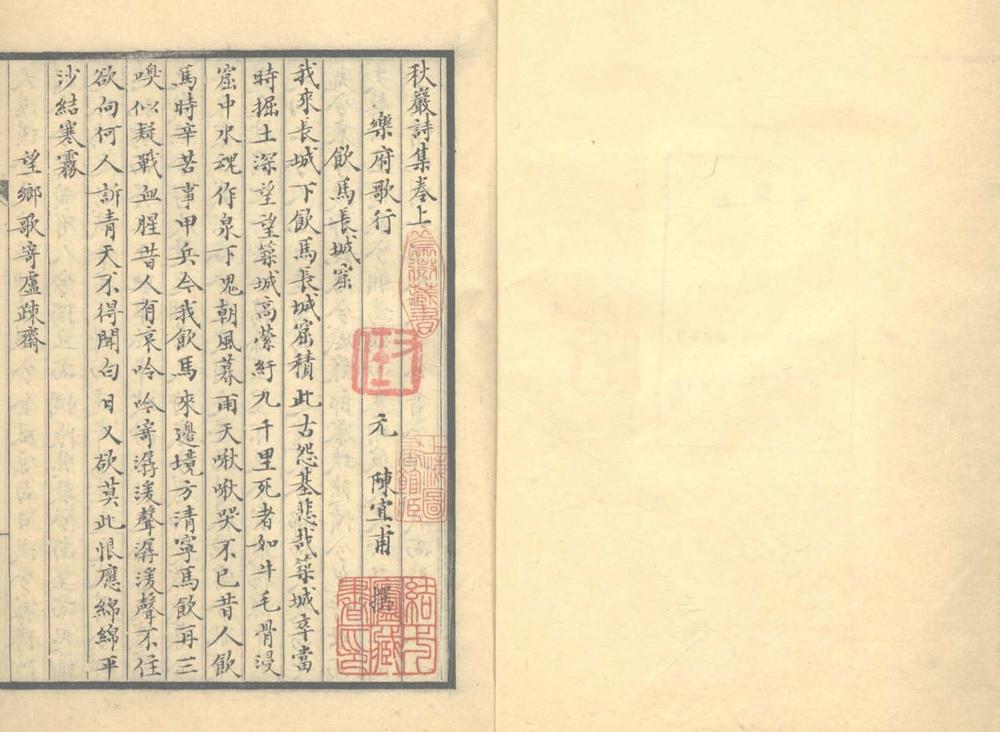 秋巖詩集卷上
樂府歌行
元 陳宜甫 撰
飲馬長城窟
我來長城下飲馬長城窟積此古怨基悲哉築城卒當
時掘土深望望築城高縈紆九千里死者如牛毛骨浸
窟中水魂作泉下鬼朝風暮雨天啾啾哭不已昔人飲
馬時辛苦事甲兵今我飲馬來邊境方清寧馬飲再三
嗅似疑戰血腥昔人有哀吟吟寄潺湲聲潺湲聲不住
欲向何人訴青天不得聞白日又欲莫此恨應綿綿平
沙結寒霧
望鄉歌寄盧疎齋
結一廬藏書印